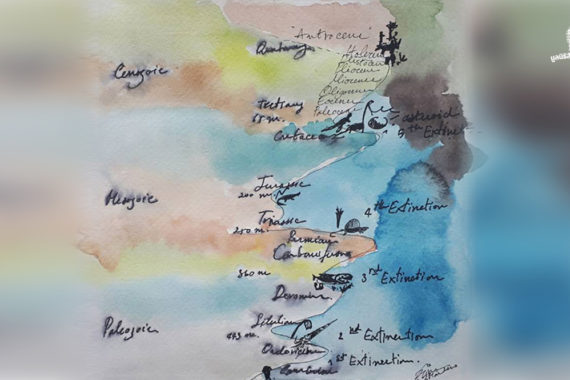 "Antrocene"
Quaternary
Holocene
Pleistocene
Pliocene
Miocene
Oligocene
Eocene
Paleocene
Cenozoic
Tertiary
65 m.
asteroid
5th Extinct
Cretaceo
Jurassic
200 m.
Mesozoic
4th Extinction
Triassic
250 m.
Permian
Carboniferous
360 m
3rd Extinction
Devonian
Silurian
443 m.
Paleozoic
2nd Extinction
Ordovician
1st Extinction.
Cambrian